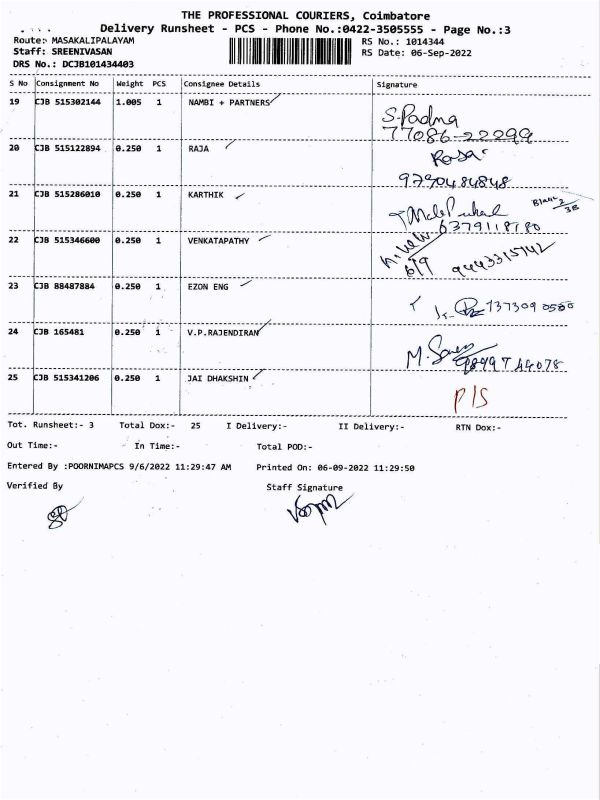 THE PROFESSIONAL COURIERS, Coimbatore
Delivery Runsheet - PCS - Phone No.:0422-3505555 - Page No.:3
Route:- MASAKALIPALAYAM RS No.: 1014344
Staff: SREENIVASAN RS Date: 06-Sep-2022
DRS No.: DCJB101434403
S No Consignment No Weight PCS Consignee Details Signature
19 CJB 515302144 1.005 1 NAMBI + PARTNERS S.Padma
77086-22099
20 CJB 515122894 0.250 1 RAJA Rasa
9790484848
21 CJB 515286010 0.250 1 KARTHIK
6379118780
22 CJB 515346600 0.250 1 VENKATAPATHY
619 9443315742
23 CJB 88487884 0.250 1 EZON ENG
24 CJB 165481 0.250 1 V.P.RAJENDIRAN
25 CJB 515341206 0.250 1 JAI DHAKSHIN P/S
Tot. Runsheet:- 3 Total Dox:- 25 I Delivery:- II Delivery:- RTN Dox:-
Out Time:- In Time:- Total POD:-
Entered By :POORNIMAPCS 9/6/2022 11:29:47 AM Printed On: 06-09-2022 11:29:50
Verified By Staff Signature